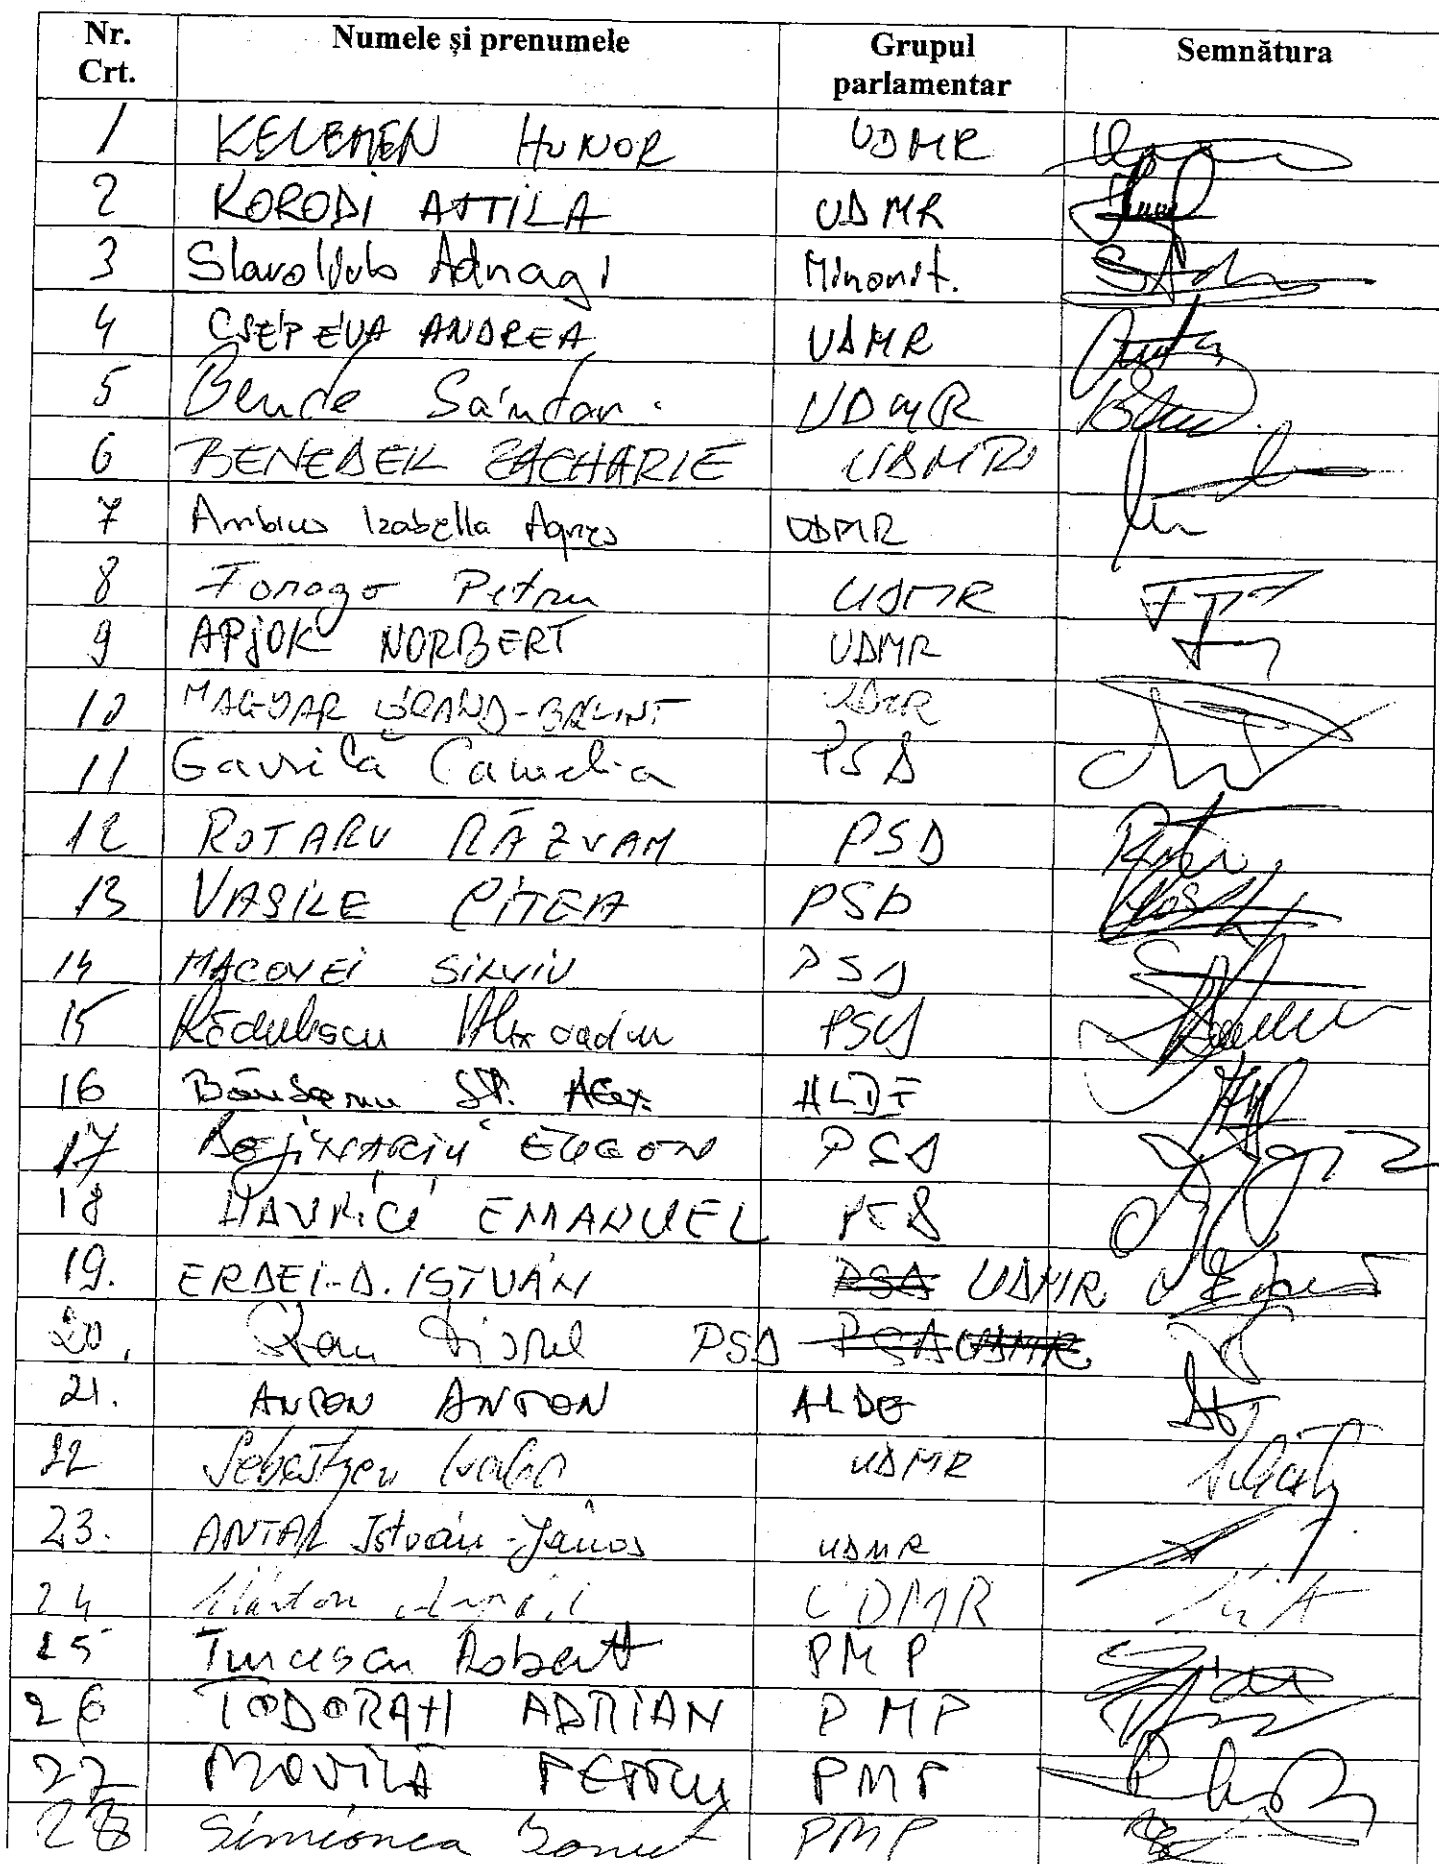 Nr. Crt. Numele și prenumele Grupul parlamentar Semnătura
1 KELEMEN HUNOR UDMR
2 KORODI ATTILA UDMR
3 Slavoljub Adnagi Minorit.
4 CSÉP ÉVA ANDREA UDMR
5 Bende Sándor UDMR
6 BENEDEK ZACHARIE UDMR
7 Ambrus Izabella Agnes UDMR
8 Farago Petru UDMR
9 APJOK NORBERT UDMR
10 MAGYAR LÓRÁND-BÁLINT UDMR
11 Gavrilă Camelia PSD
12 ROTARU RĂZVAN PSD
13 VASILE CÎTEA PSD
14 MACOVEI SILVIU PSD
15 Rădulescu Alexandru PSD
16 St. Alex. ALDE
17 BEJINARIU EUGEN PSD
18 HAVRICI EMANUEL PSD
19. ERDEI-D. ISTVÁN PSD UDMR
20. Viorel PSD PSD UDMR
21. ANTON ANTON ALDE
22 Sebestyen UDMR
23. ANTAL István-János UDMR
24 Márton Árpád UDMR
25 Turcescu Robert PMP
26 TODORAN ADRIAN PMP
27 MOVILĂ PETRU PMP
28 Simionca Ionuț PMP